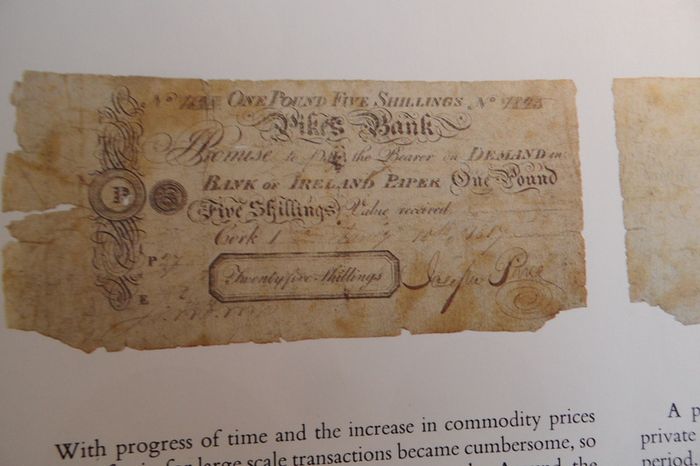 No ONE POUND FIVE SHILLINGS No
Pikes Bank
I Promise to Pay the Bearer on DEMAND in
BANK OF IRELAND PAPER One Pound
Five Shillings Value received
P
Cork
P
E
Twenty five Shillings
Joseph Pike
With progress of time and the increase in commodity prices
for large scale transactions became cumbersome, so
the
A p
private
period.